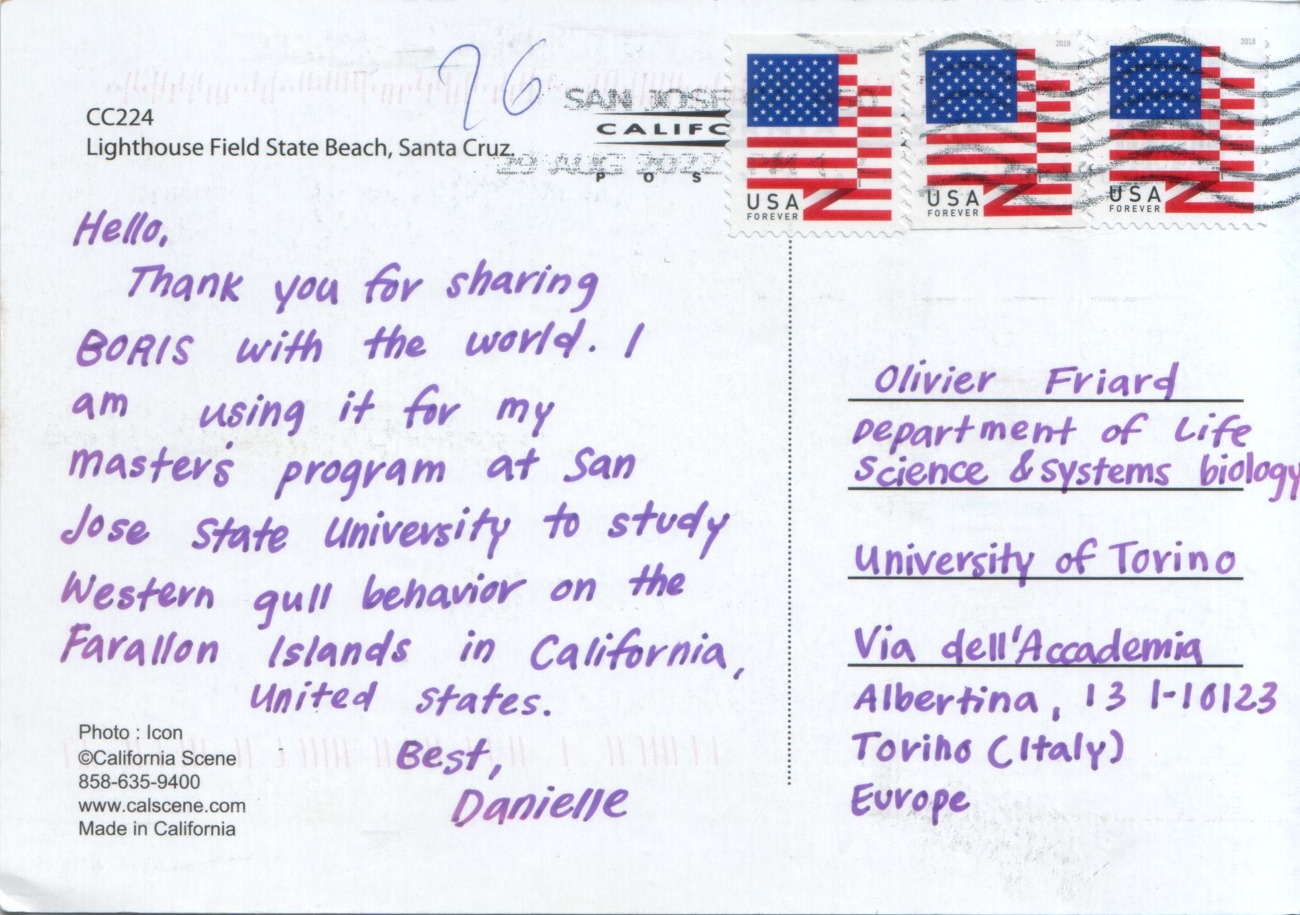 76
SAN JOSE
CALIFC
CC224
Lighthouse Field State Beach, Santa Cruz.
AUG 2022 PM
P O S
2018
2018
USA
FOREVER
USA
FOREVER
USA
FOREVER
Hello,
Thank you for sharing
BORIS with the world. I
am using it for my
master's program at San
Jose State University to study
Western gull behavior on the
Farallon Islands in California,
United States.
Best,
Danielle
Photo : Icon
©California Scene
858-635-9400
www.calscene.com
Made in California
Olivier Friard
Department of Life
Science & systems biology
University of Torino
Via dell'Accademia
Albertina, 13 I-10123
Torino (Italy)
Europe